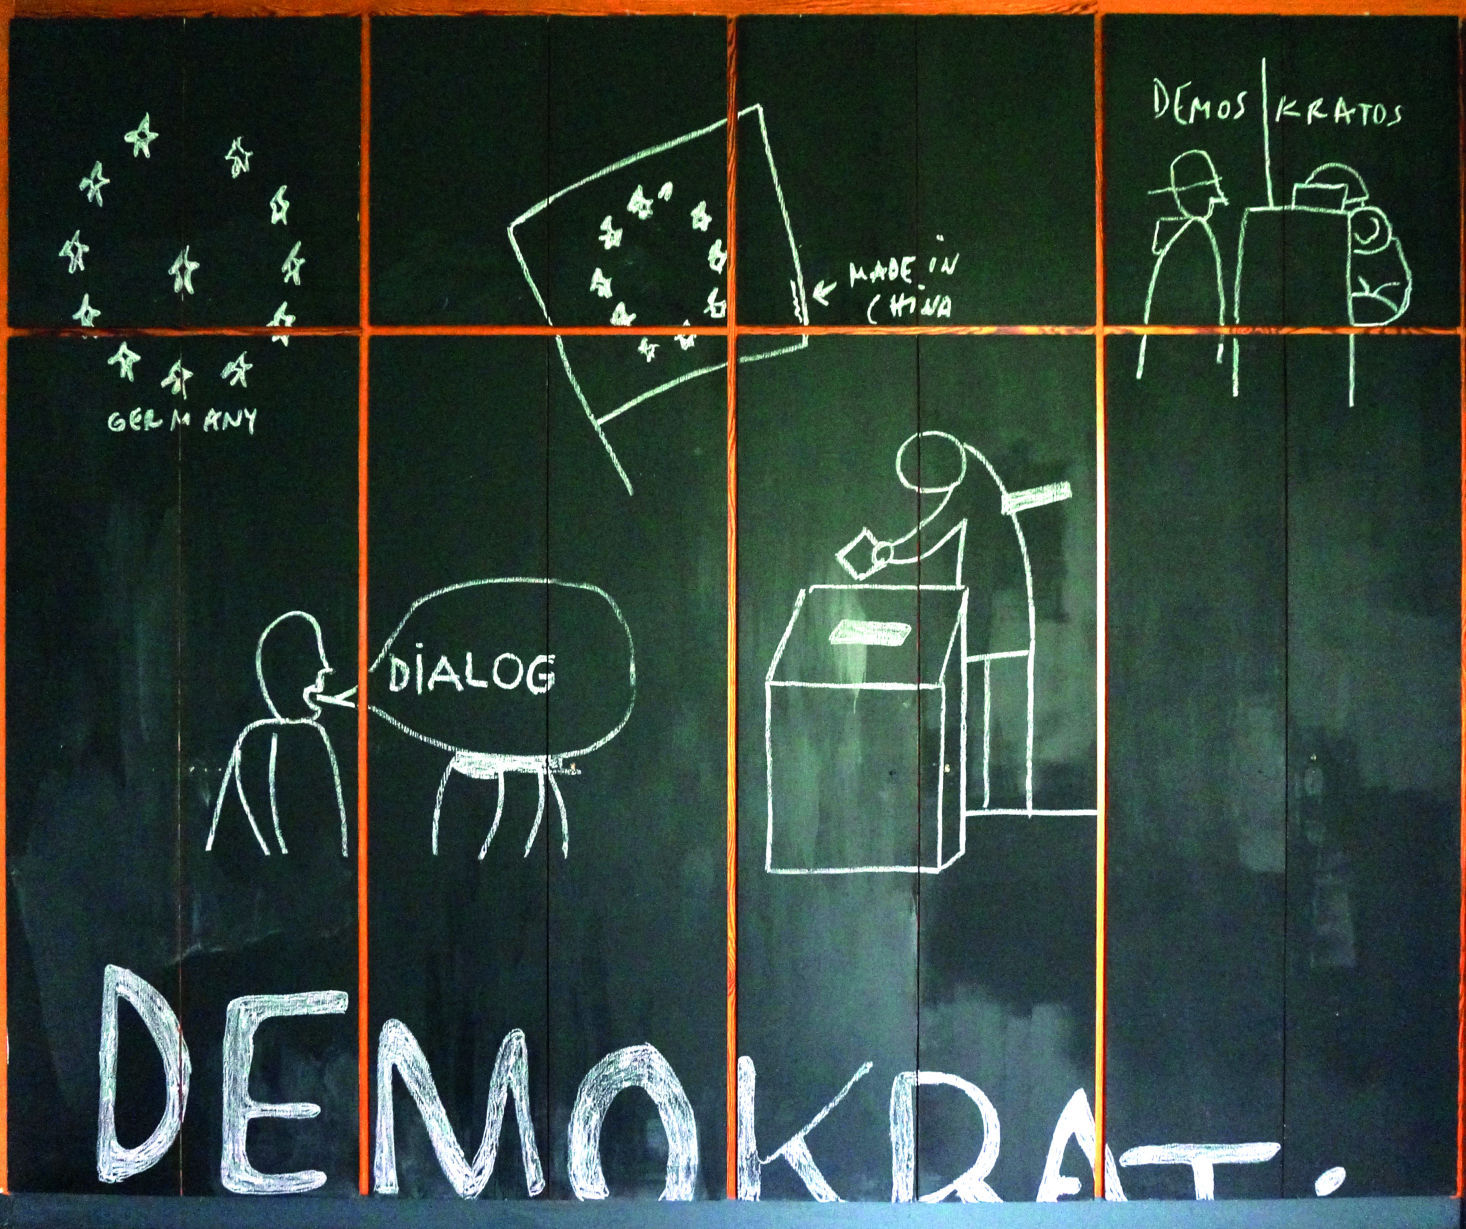 DEMOS KRATOS
MADE IN
CHINA
GERMANY
DIALOG
DEMOKRAT.